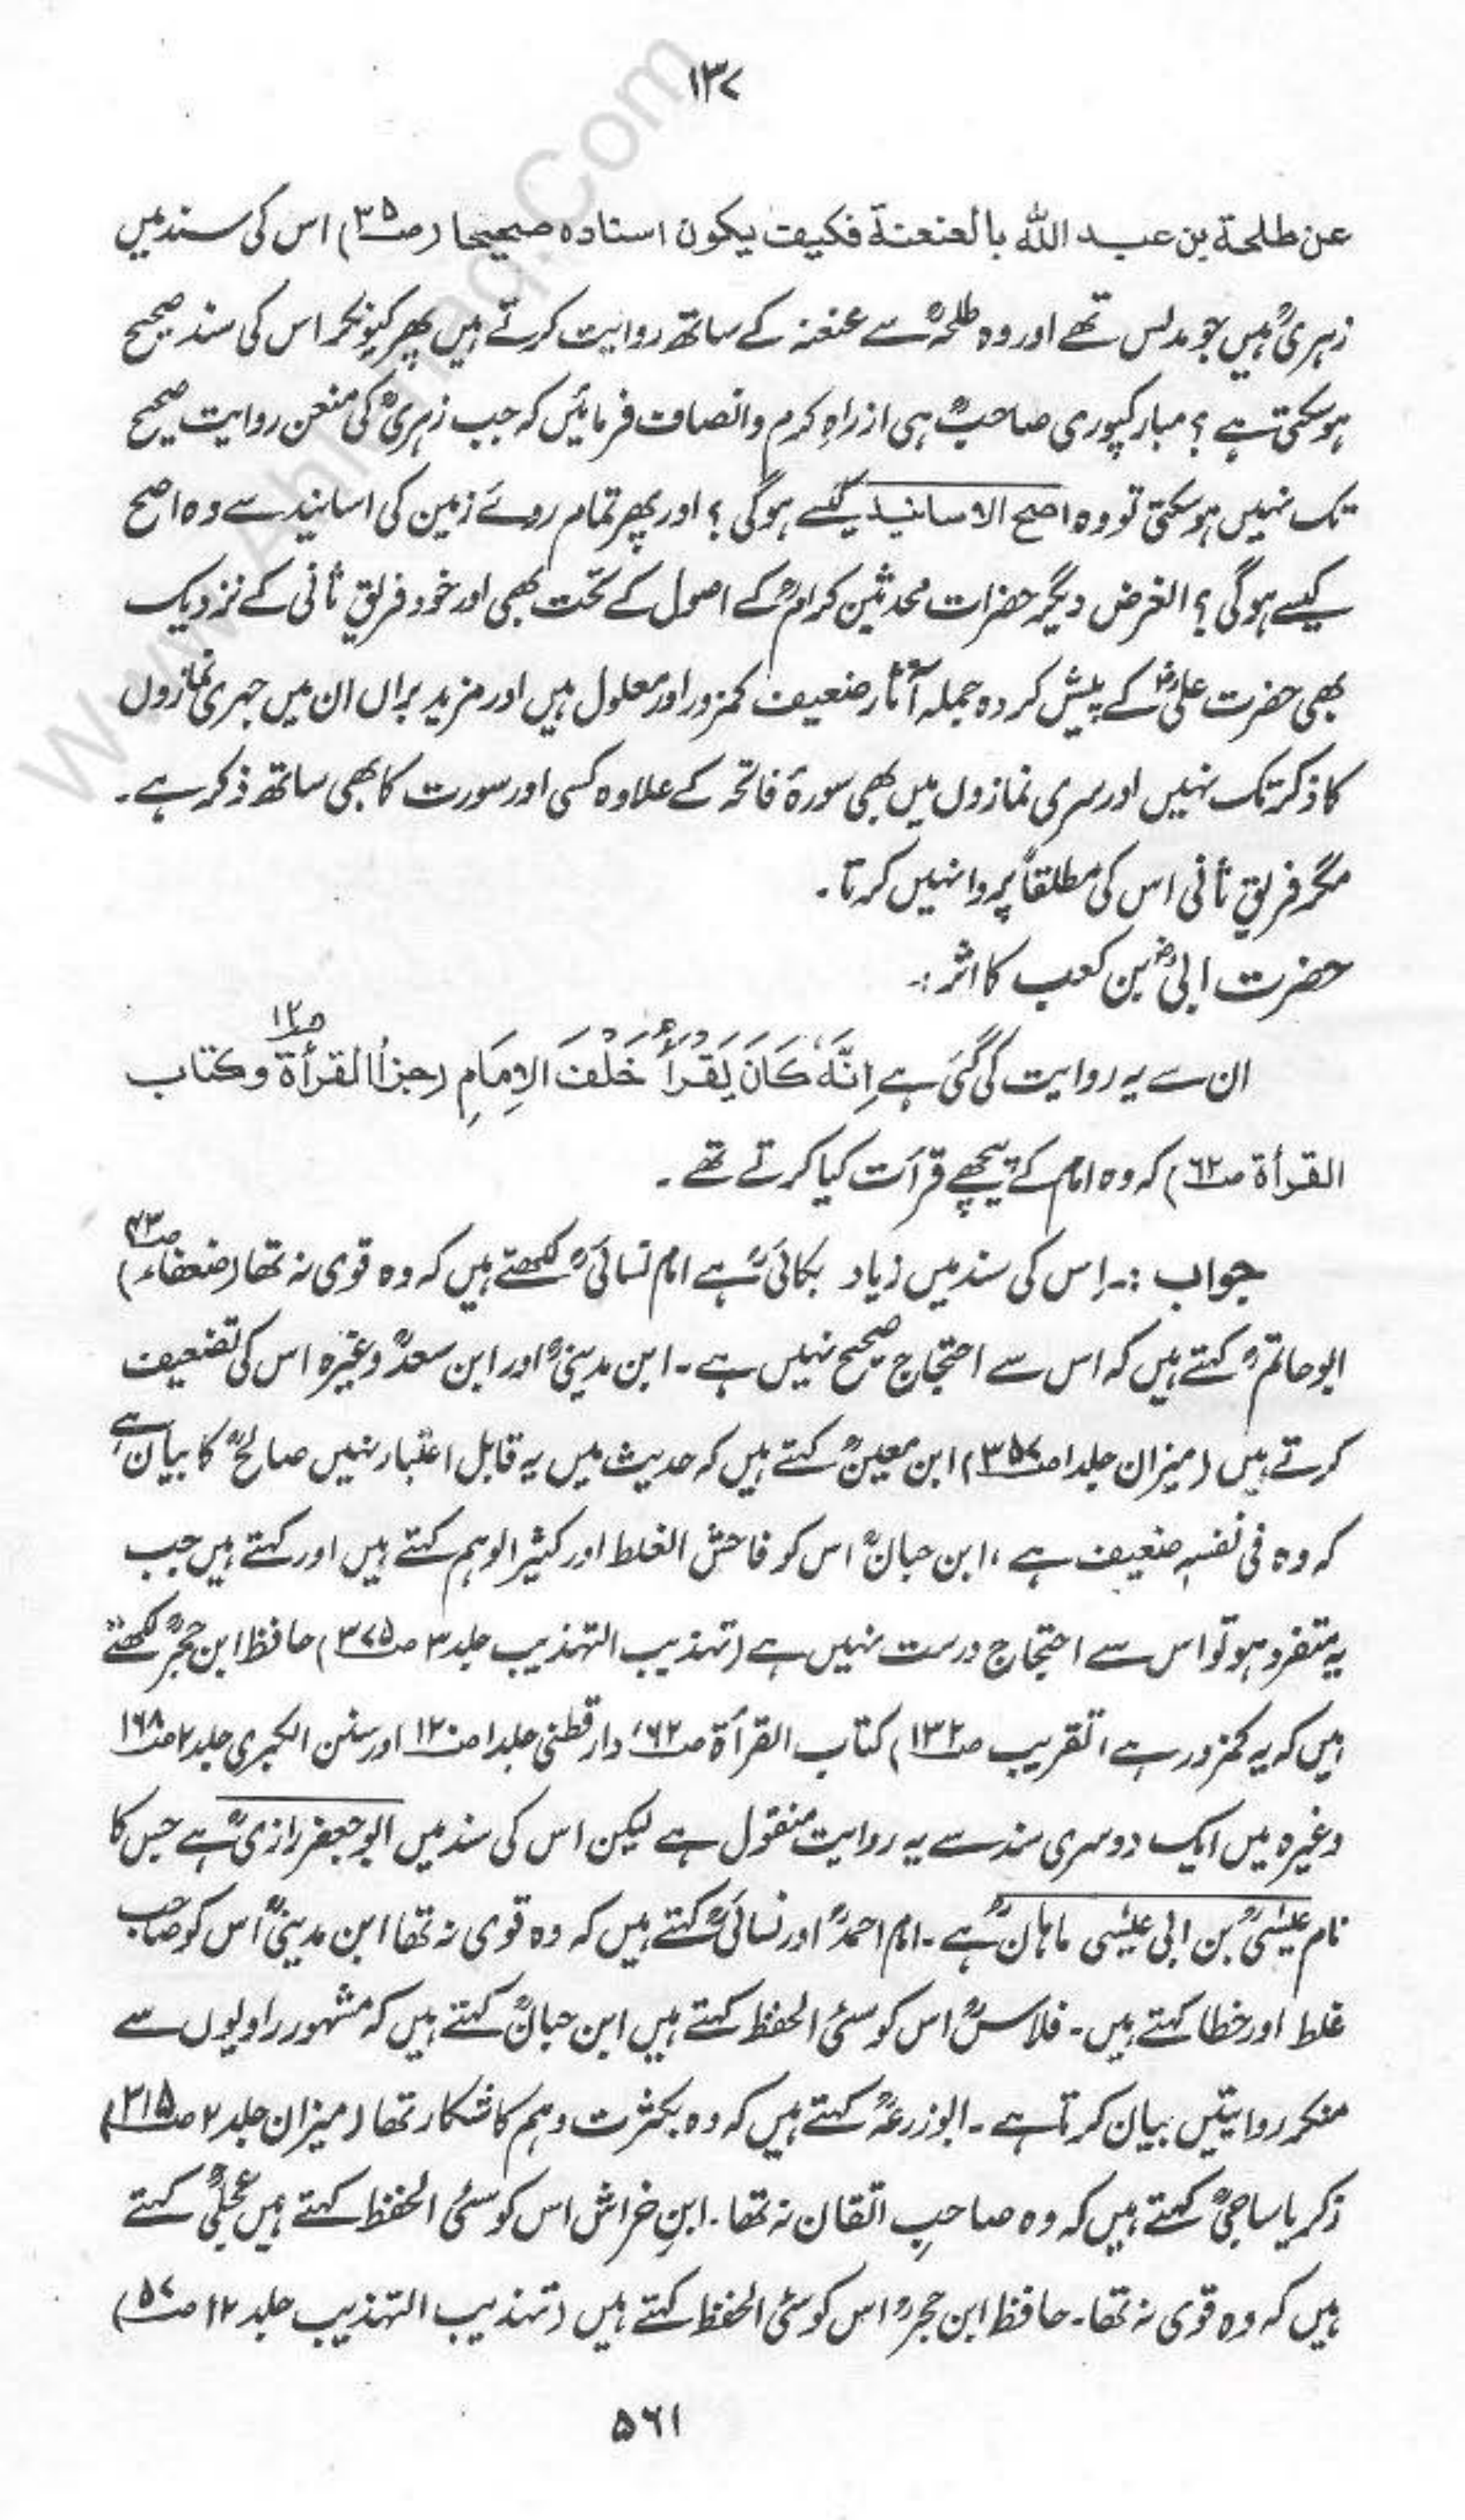 ۱۳۷
عن طلحة بن عبد الله بالعنعنة فكيف يكون اسناده صحيحا (ص۳۵) اس کی سند میں
زہریؒ ہیں جو مدلس تھے اور وہ طلحہؒ سے عنعنہ کے ساتھ روایت کرتے ہیں پھر کیونکر اس کی سند صحیح
ہو سکتی ہے ؟ مبارکپوری صاحبؒ ہی از راہِ کرم و انصاف فرمائیں کہ جب زہریؒ کی منعن روایت صحیح
تک نہیں ہو سکتی تو وہ اصح الاسانید کیسے ہوگی ؟ اور پھر تمام روئے زمین کی اسانید سے وہ اصح
کیسے ہوگی ؟ الغرض دیگر حضرات محدثین کرامؒ کے اصول کے تحت بھی اور خود فریقِ ثانی کے نزدیک
بھی حضرت علیؓ کے پیش کردہ جملہ آثار ضعیف کمزور اور معلول ہیں اور مزید براں ان میں جہری نمازوں
کا ذکر تک نہیں اور سری نمازوں میں بھی سورۂ فاتحہ کے علاوہ کسی اور سورت کا بھی ساتھ ذکر ہے ۔
مگر فریقِ ثانی اس کی مطلقاً پروا نہیں کرتا ۔
حضرت ابیؓ بن کعب کا اثر :۔
ان سے یہ روایت کی گئی ہے اِنَّهٗ كَانَ يَقْرَأُ خَلْفَ الاِمَامِ (جزأ القرأة ص۱۲ وكتاب
القرأة ص۶۲) کہ وہ امام کے پیچھے قرأت کیا کرتے تھے ۔
جواب :۔ اس کی سند میں زیاد بکائیؒ ہے امام نسائیؒ لکھتے ہیں کہ وہ قوی نہ تھا (ضعفاء ص۴۳)
ابو حاتمؒ کہتے ہیں کہ اس سے احتجاج صحیح نہیں ہے ۔ ابن مدینیؒ اور ابن سعدؒ وغیرہ اس کی تضعیف
کرتے ہیں (میزان جلد ۱ ص۳۵۷) ابن معینؒ کہتے ہیں کہ حدیث میں یہ قابل اعتبار نہیں صالحؒ کا بیان ہے
کہ وہ فی نفسہٖ ضعیف ہے ، ابن حبانؒ اس کو فاحش الغلط اور کثیر الوہم کہتے ہیں اور کہتے ہیں جب
یہ متفرد ہو تو اس سے احتجاج درست نہیں ہے (تہذیب التہذیب جلد ۳ ص۳۷۵) حافظ ابن حجرؒ لکھتے
ہیں کہ یہ کمزور ہے (تقریب ص۱۳۲) کتاب القرأة ص۶۲، دارقطنی جلد ۱ ص۱۲۰ اور سنن الکبری جلد ۲ ص۱۶۸
وغیرہ میں ایک دوسری سند سے یہ روایت منقول ہے لیکن اس کی سند میں ابو جعفر رازیؒ ہے جس کا
نام عیسٰیؒ بن ابی عیسٰی ماہانؒ ہے ۔ امام احمدؒ اور نسائیؒ کہتے ہیں کہ وہ قوی نہ تھا ابن مدینیؒ اس کو صاحب
غلط اور خطا کہتے ہیں ۔ فلاسؒ اس کو سئی الحفظ کہتے ہیں ابن حبانؒ کہتے ہیں کہ مشہور راویوں سے
منکر روایتیں بیان کرتا ہے ۔ ابوزرعہؒ کہتے ہیں کہ وہ بکثرت وہم کا شکار تھا (میزان جلد ۲ ص۳۱۵)
زکریا ساجیؒ کہتے ہیں کہ وہ صاحبِ اتقان نہ تھا ۔ ابنِ خراش اس کو سئی الحفظ کہتے ہیں عجلیؒ کہتے
ہیں کہ وہ قوی نہ تھا ۔ حافظ ابن حجرؒ اس کو سئی الحفظ کہتے ہیں (تہذیب التہذیب جلد ۱۲ ص۵۷)
۵۶۱